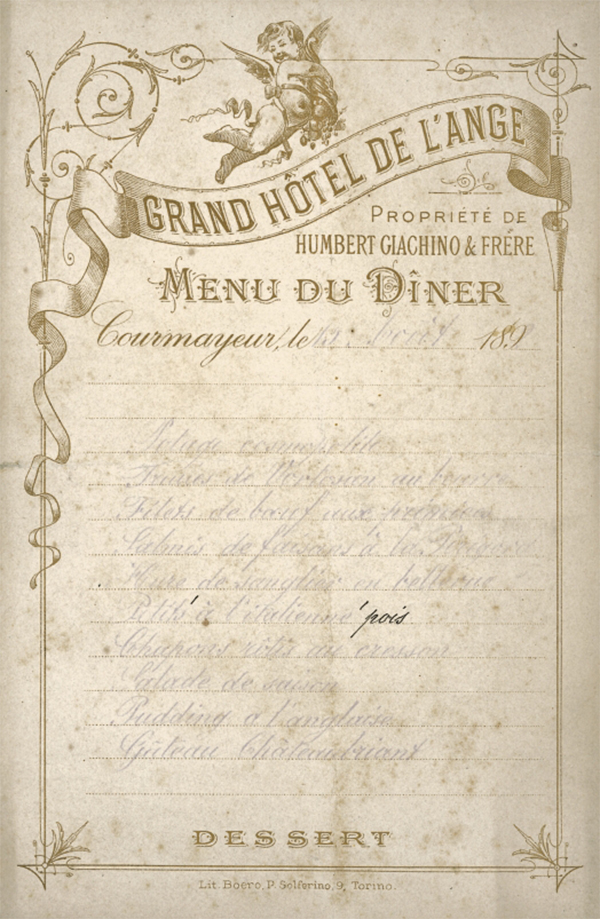 GRAND HÔTEL DE L'ANGE
PROPRIÉTÉ DE
HUMBERT GIACHINO & FRÈRE
MENU DU DÎNER
Courmayeur, le Août 189
Potage
Truites de au beurre
Filets de bœuf aux
Salmis de faisans à la
Hure de sanglier en bellevue
Petits à l'italienne pois
Chapons rôtis au cresson
Salade de saison
Pudding à l'anglaise
Gâteau Chateaubriant
DESSERT
Lit. Boero, P. Solferino, 9, Torino.